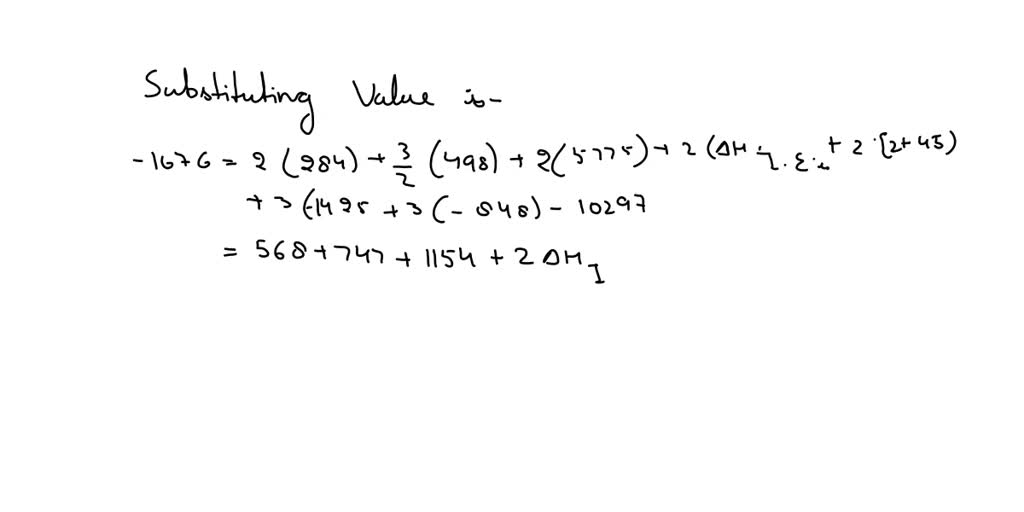 Substituting Value is-
-1676 = 2 (284) + 3/2 (498) + 2(5775) + 2 (ΔH I.E. + 2 [2745)
+ 3 (-1425 + 3 (-848) - 10297
= 568 + 747 + 1154 + 2 ΔH I